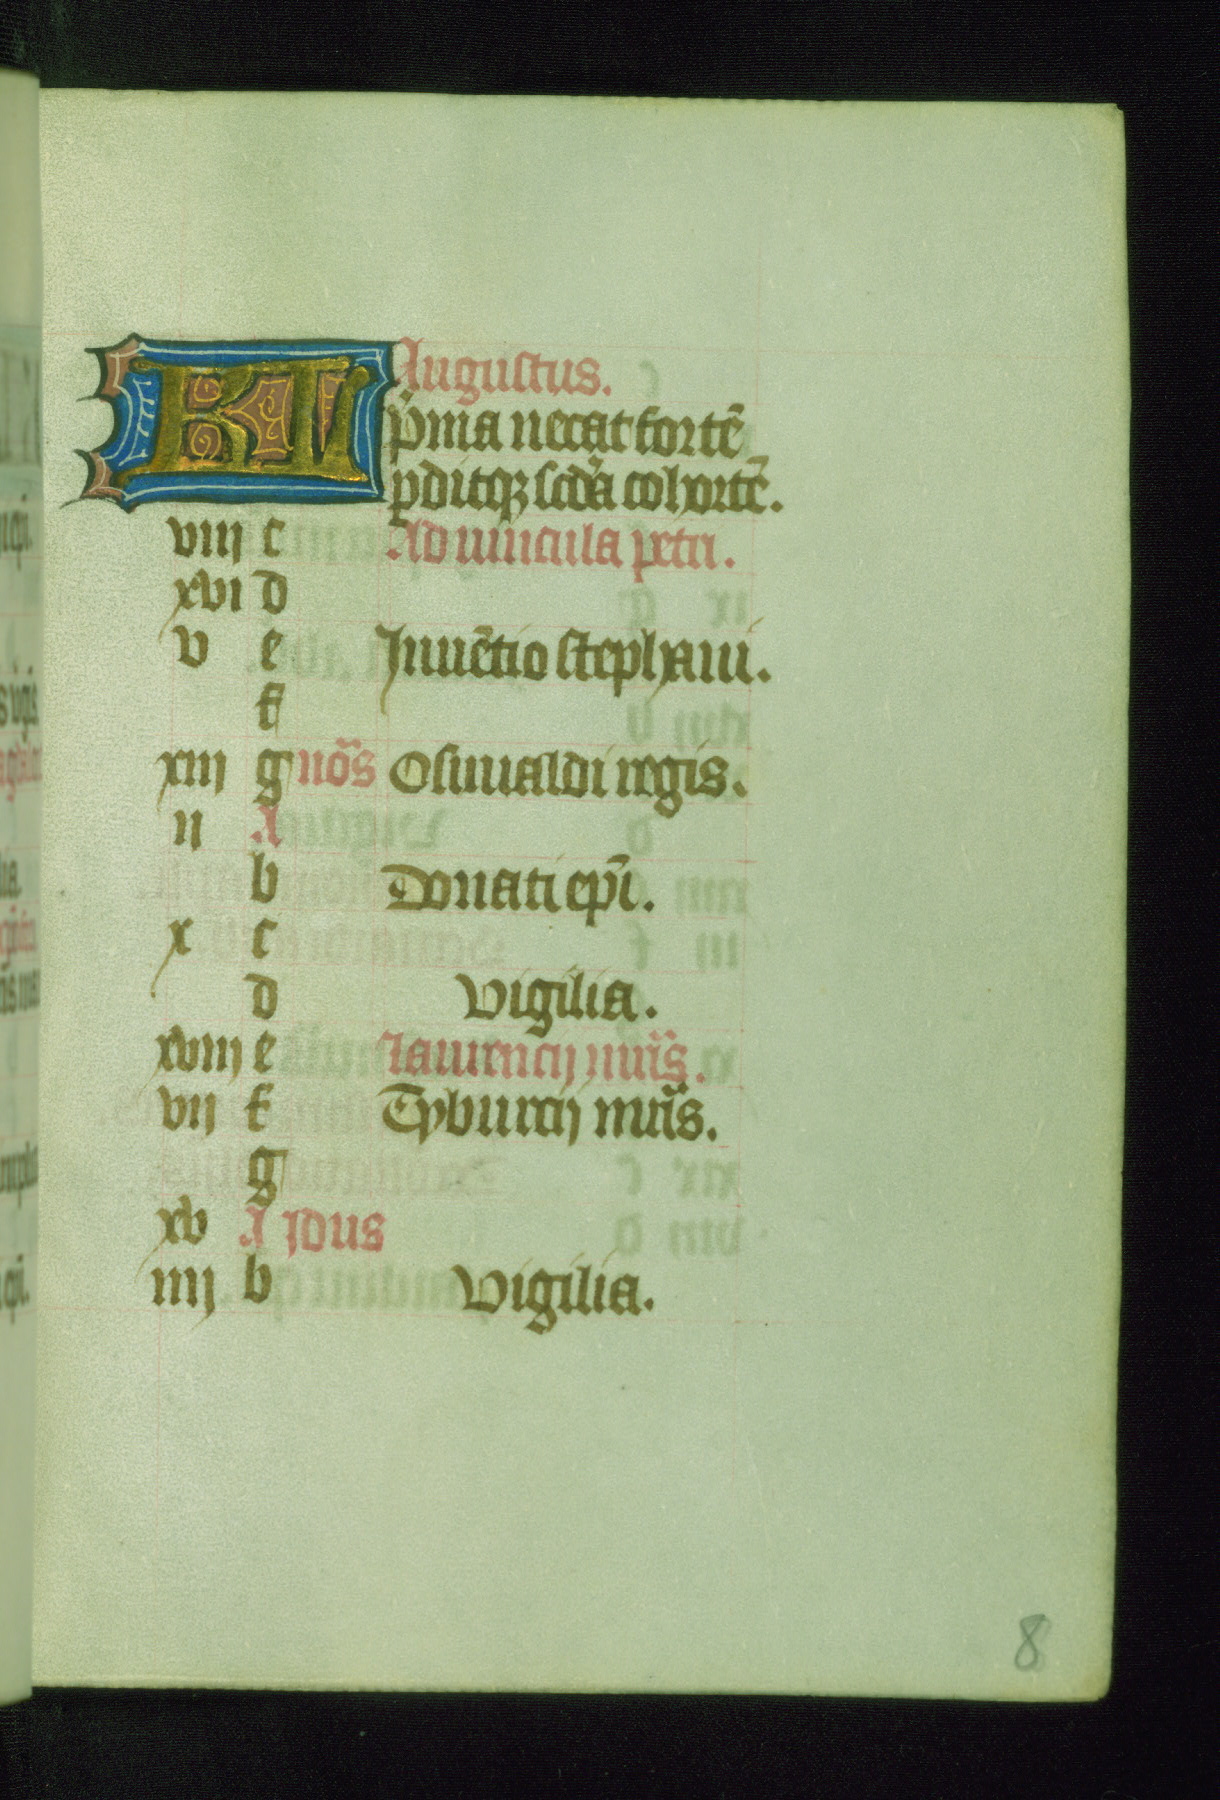 KL Augustus.
p̓ma necat fortē
ꝑditqꝫ scd̓a cohortē.
viii c Ad vincula petri.
xvi d
v e Inuētio stephani.
f
xiii g nōs Osuualdi regis.
ii A
b Donati ep̄i.
x c
d Vigilia.
xviii e Laurencij mr̄is.
vii f Tyburcij mr̄is.
g
xv A Idus
iiii b Vigilia.
8